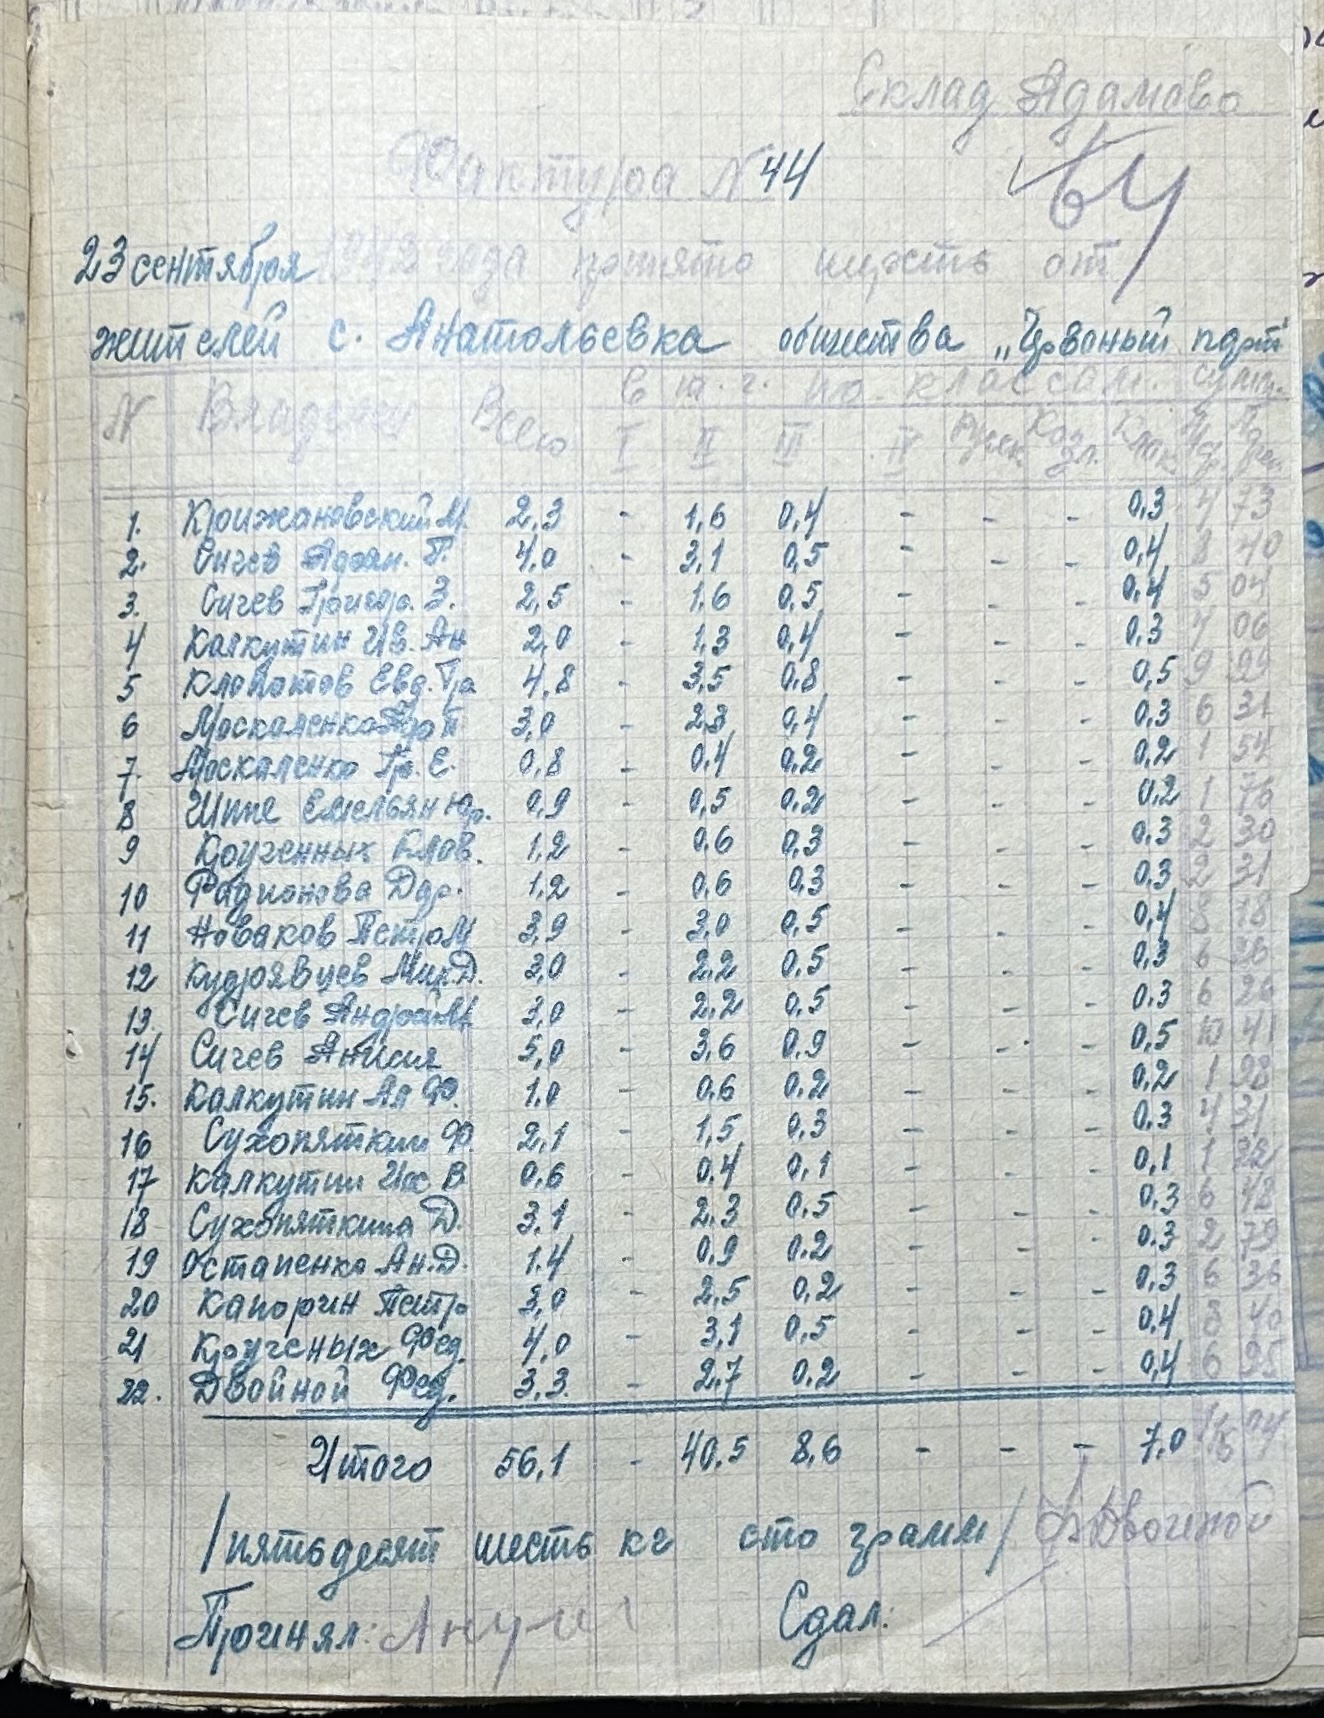 Склад Адамово
Фактура N 44
64
23 сентября 1942 года принято шерсть от
жителей с. Анатольевка общества „Червоный
N Владелец Всего в т. ч. по классам. сумм.
I II III IV
1. Крижановский М. 2,3 - 1,6 0,4 - - - 0,3 4 73
2. Сичев Адам. П. 4,0 - 3,1 0,5 - - - 0,4 8 40
3. Сичев Григор. З. 2,5 - 1,6 0,5 - - - 0,4 5 04
4 Калкутин Ив. Ан 2,0 - 1,3 0,4 - - - 0,3 4 06
5 Клопотов Евд. Гр 4,8 - 3,5 0,8 - - - 0,5 9 99
6 Москаленко 3,0 - 2,3 0,4 - - - 0,3 6 31
7. Москаленко Гр. Е. 0,8 - 0,4 0,2 - - - 0,2 1 54
8 Емельян 0,9 - 0,5 0,2 - - - 0,2 1 76
9 Крученных Клав. 1,2 - 0,6 0,3 - - - 0,3 2 30
10 Радионова Дар. 1,2 - 0,6 0,3 - - - 0,3 2 31
11 Новаков Петр М 3,9 - 3,0 0,5 - - - 0,4 8 18
12 Кудрявцев Мих. Д. 3,0 - 2,2 0,5 - - - 0,3 6 26
13. Сичев Андрей М. 3,0 - 2,2 0,5 - - - 0,3 6 26
14 Сичев Анисия 5,0 - 3,6 0,9 - - - 0,5 10 41
15. Калкутин Ал Ф. 1.0 - 0,6 0,2 - - - 0,2 1 98
16 Сухопяткин Ф. 2,1 - 1,5 0,3 - - - 0,3 4 31
17 Калкутин В 0,6 - 0.4 0,1 - - - 0,1 1 22
18 Сухопяткина Д. 3.1 - 2.3 0.5 - - - 0,3 6 48
19 Остапенко Ан. Д. 1.4 - 0,9 0.2 - - - 0.3 2 79
20 Капорин Петр 3,0 - 2,5 0,2 - - - 0,3 6 36
21 Крученых Фед. 4,0 - 3,1 0,5 - - - 0,4 8 40
22. Двойной Фед. 3,3 - 2,7 0,2 - - - 0,4 6 95
Итого 56,1 - 40,5 8,6 - - - 7,0
/пятьдесят шесть кг сто грамм/ Ф. Двойной
Принял: Сдал: